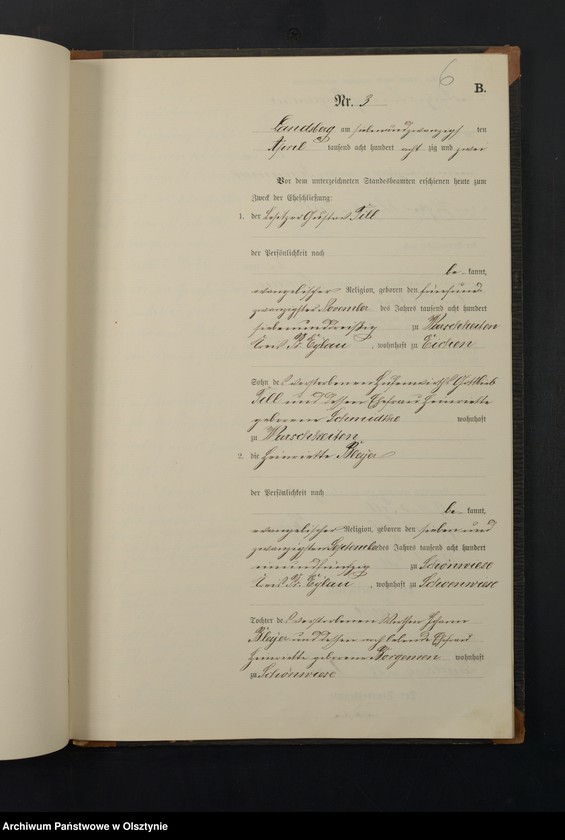 6
B.
Nr. 3
Landsberg am siebenundzwanzigsten
April tausend acht hundert acht zig und zwei
Vor dem unterzeichneten Standesbeamten erschienen heute zum
Zweck der Eheschließung:
1. der Besitzer Gustav Till
der Persönlichkeit nach
be kannt,
evangelischer Religion, geboren den fünfund
zwanzigsten November des Jahres tausend acht hundert
siebenunddreißig zu Warschkeiten
Kreis Pr. Eylau, wohnhaft zu Eichen
Sohn des verstorbenen Gottlieb
Till und dessen Ehefrau Henriette
geborene Schmidtke wohnhaft
zu Warschkeiten
2. die Henriette Bleyer
der Persönlichkeit nach
be kannt,
evangelischer Religion, geboren den sieben und
zwanzigsten September des Jahres tausend acht hundert
zu Schönwiese
Kreis Pr. Eylau, wohnhaft zu Schoenwiese
Tochter des verstorbenen Johann
Bleyer und dessen noch lebende Ehefrau
Henriette geborene wohnhaft
zu Schönwiese
Archiwum Państwowe w Olsztynie